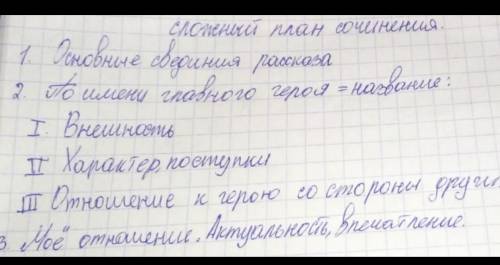 сложный план сочинения.
1. Основные свединия рассказа
2. По имени главного героя = название:
I. Внешность
II Характер, поступки
III Отношение к герою со стороны других
3. Моё отношение. Актуальность, впечатление.